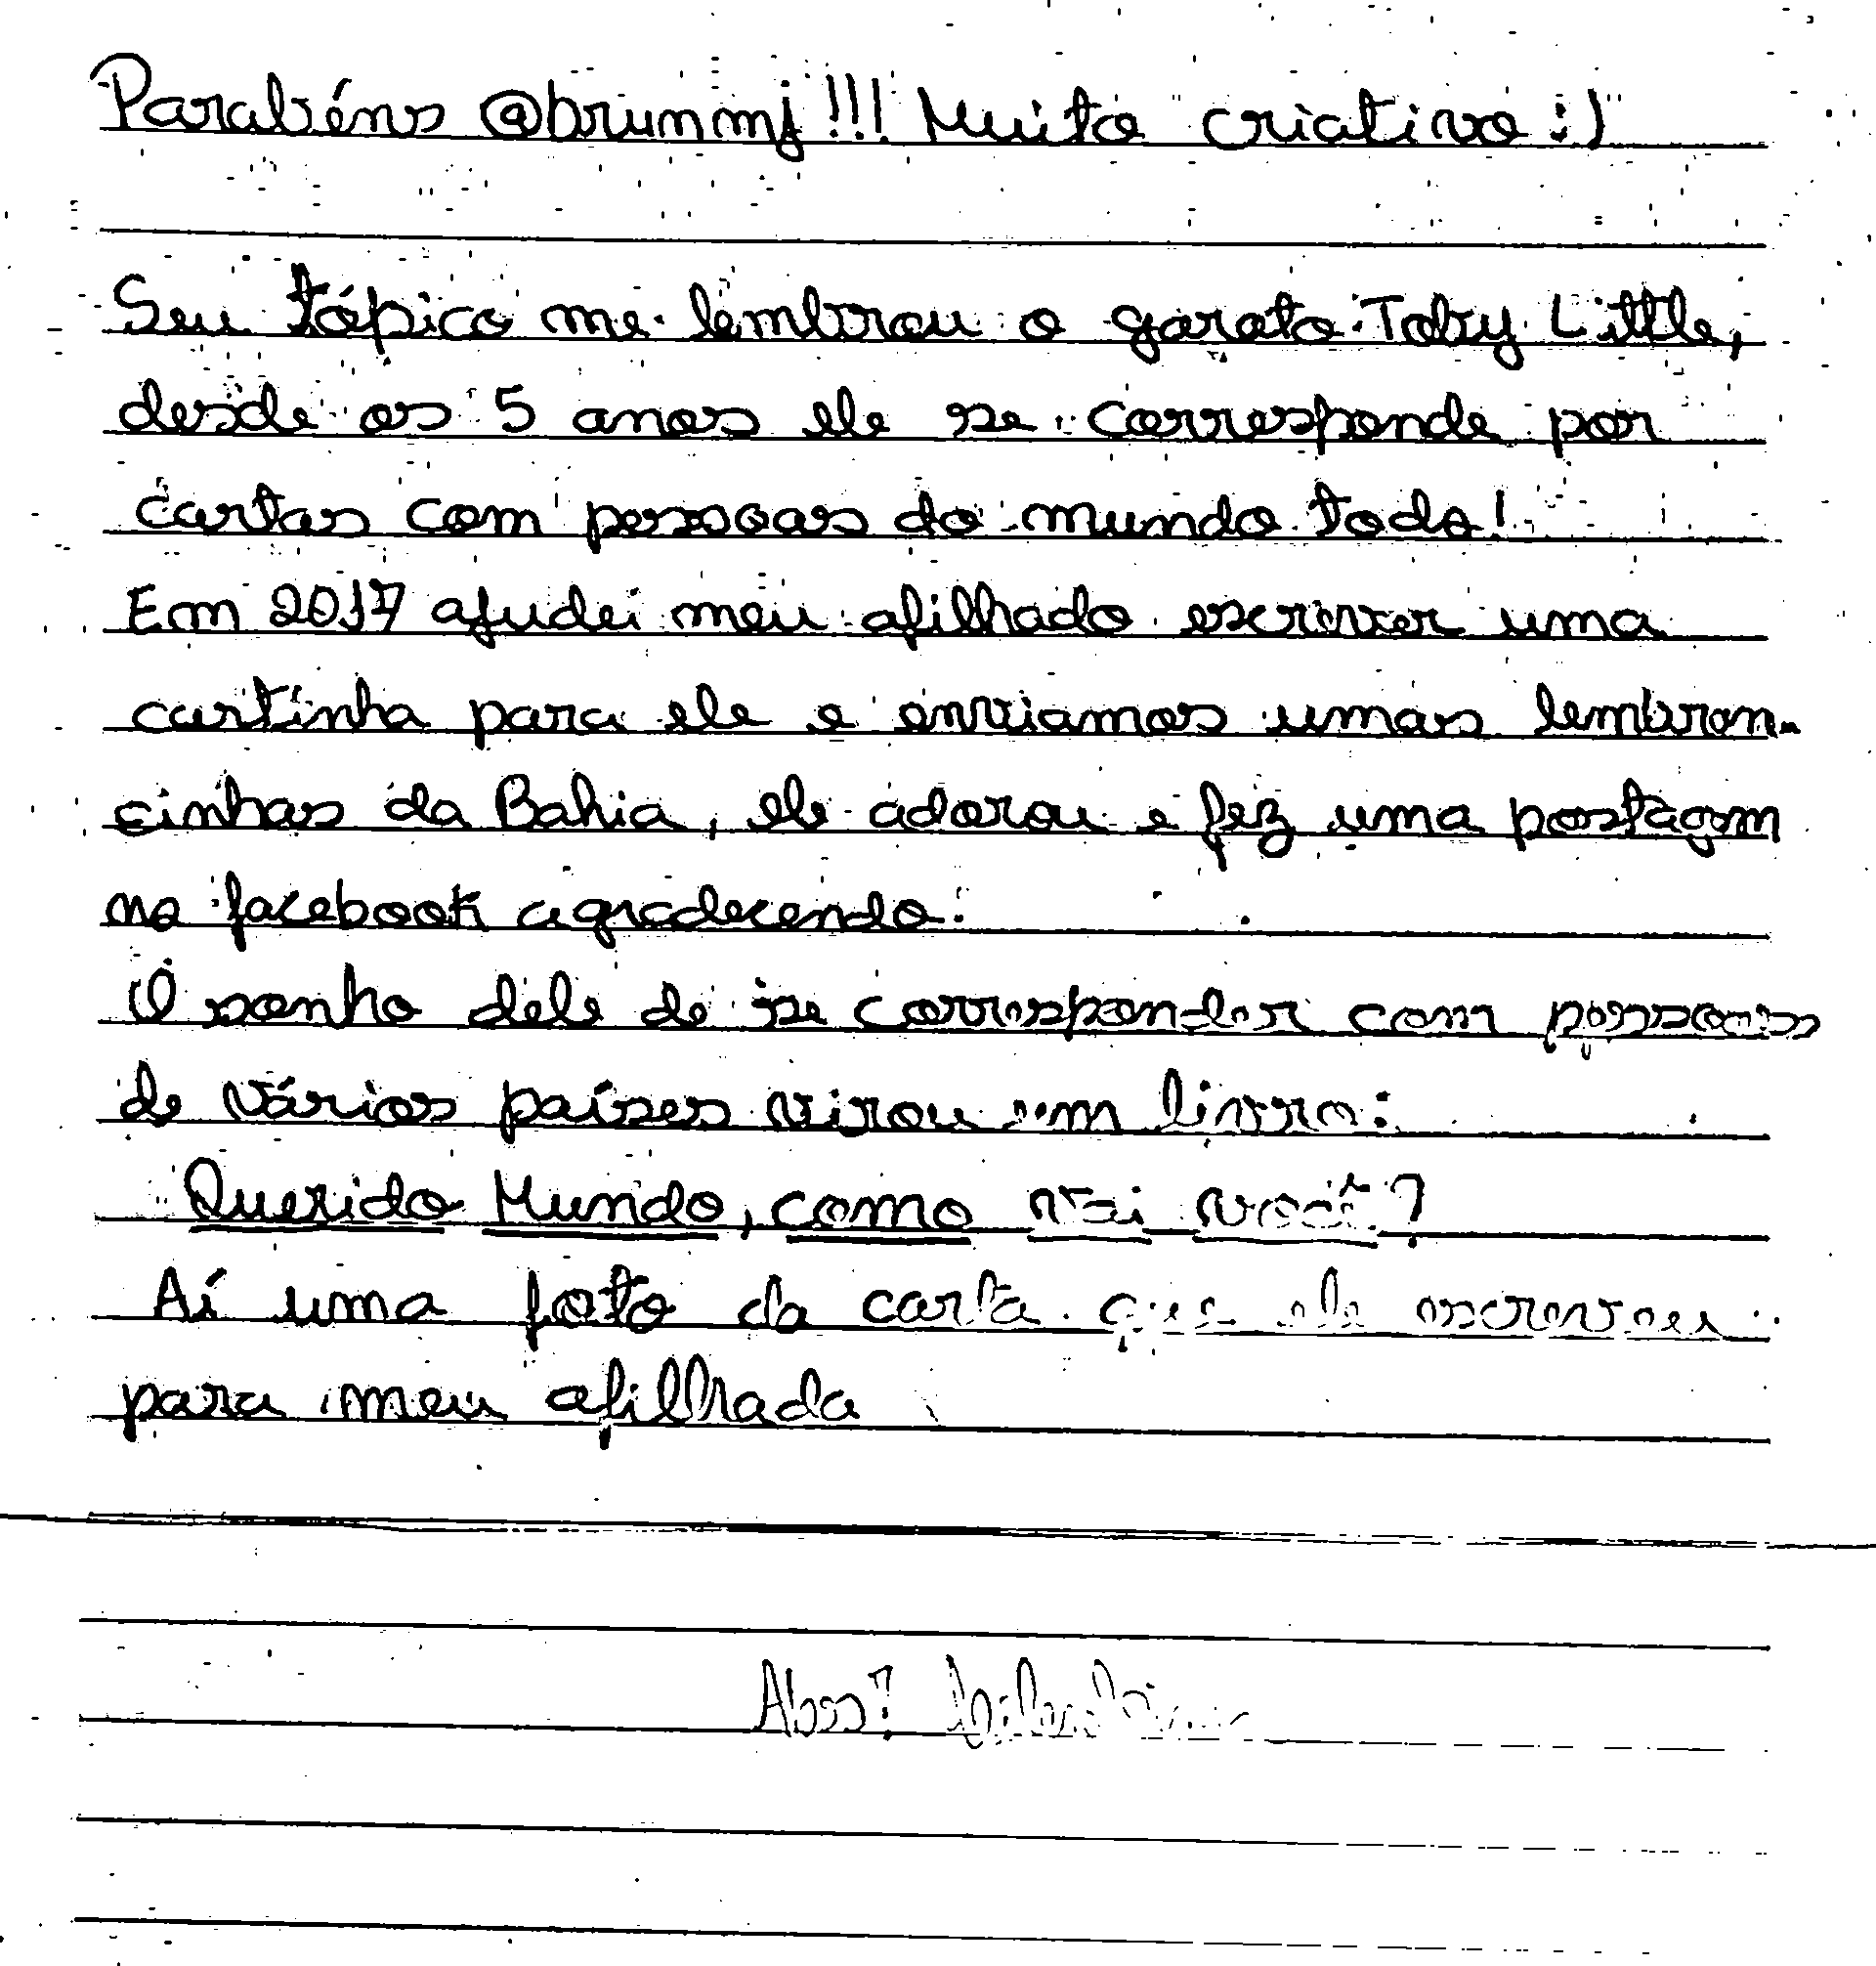 Parabéns @brummj!!! Muito criativo :)
Seu tópico me lembrou o garoto Toby Little,
desde os 5 anos ele se corresponde por
cartas com pessoas do mundo todo!
Em 2017 ajudei meu afilhado escrever uma
cartinha para ele e enviamos umas lembran-
cinhas da Bahia, ele adorou e fez uma postagem
no facebook agradecendo.
O sonho dele de se corresponder com pessoas
de vários países virou um livro:
Querido Mundo, como vai você?
Aí uma foto da carta que ele escreveu
para meu afilhado